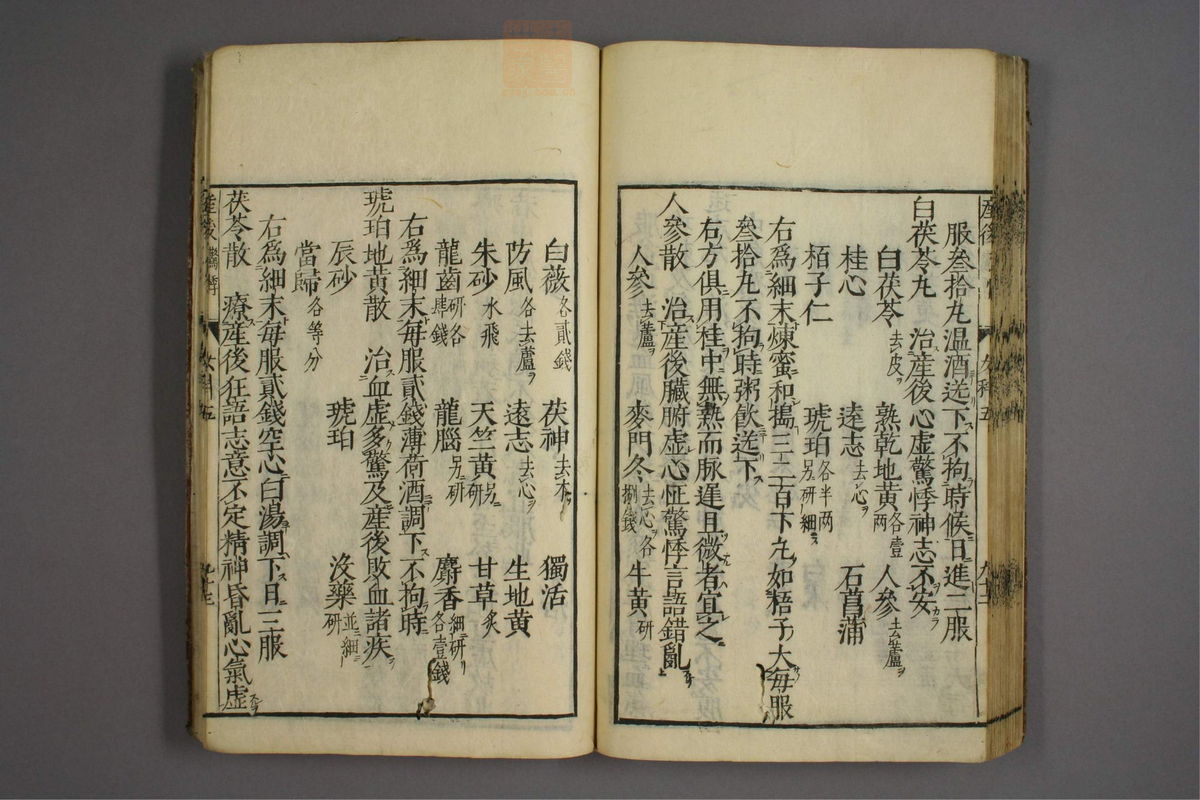 産後
女科五
服叄拾丸温酒送下不拘時候日進二服
白茯苓丸　治産後心虚驚悸神志不安
白茯苓去皮　熟乾地黄各壹両　人參去蘆
桂心　逺志去心　石菖蒲
栢子仁　琥珀各半両另研細
右爲細末煉蜜和搗三二百下丸如梧子大毎服
叄拾丸不拘時粥飲送下
右方俱用桂中無熱而脉遲且微者宜之
人參散　治産後臓腑虚心怔驚悸言語錯亂
人參去蘆　麥門冬去心各捌錢　牛黄研
白薇各貳錢　茯神去木　獨活
防風各去蘆　逺志去心　生地黄
朱砂水飛　天竺黄另研　甘草炙
龍齒研各肆錢　龍腦另研　麝香細研各壹錢
右爲細末毎服貳錢薄荷酒調下不拘時
琥珀地黄散　治血虚多驚及産後敗血諸疾
辰砂　琥珀　没藥並細研
當歸各等分
右爲細末毎服貳錢空心白湯調下日三服
茯苓散　療産後狂語志意不定精神昏亂心氣虚
産後驚悸
女科五